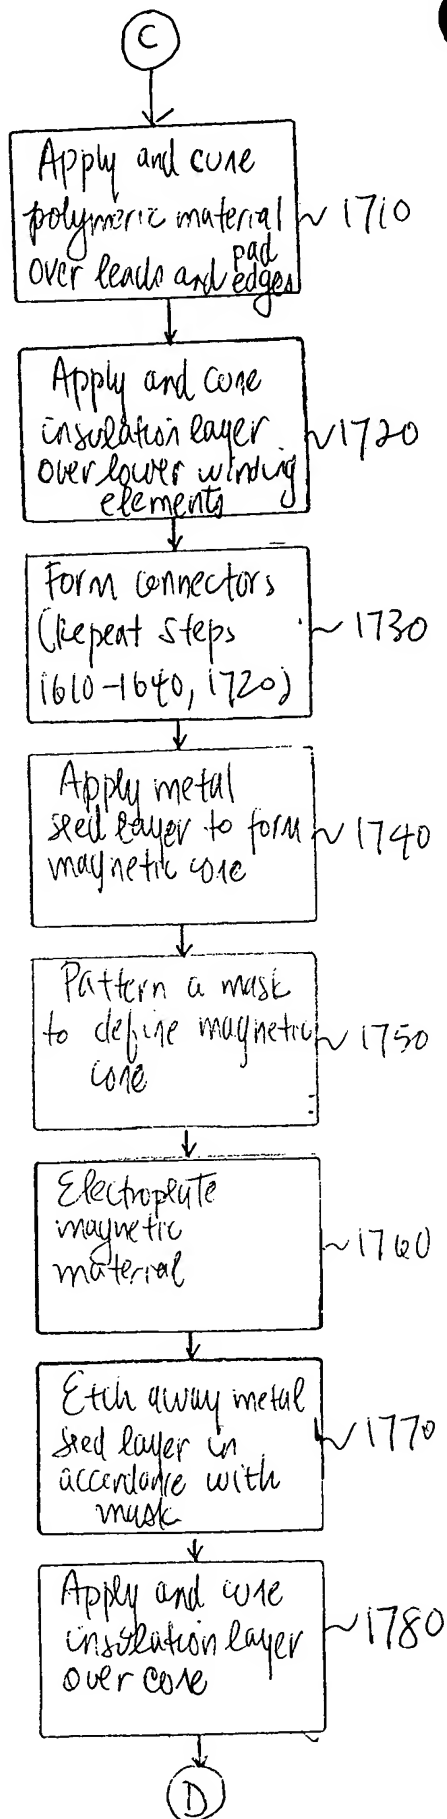 C
Apply and cure
polymeric material
over leads and pad edges
1710
Apply and cure
insulation layer
over lower winding
elements
1720
Form connectors
(Repeat steps
1610-1640, 1720)
1730
Apply metal
seed layer to form
magnetic core
1740
Pattern a mask
to define magnetic
core
1750
Electroplate
magnetic
material
1760
Etch away metal
seed layer in
accordance with
mask
1770
Apply and cure
insulation layer
over core
1780
D